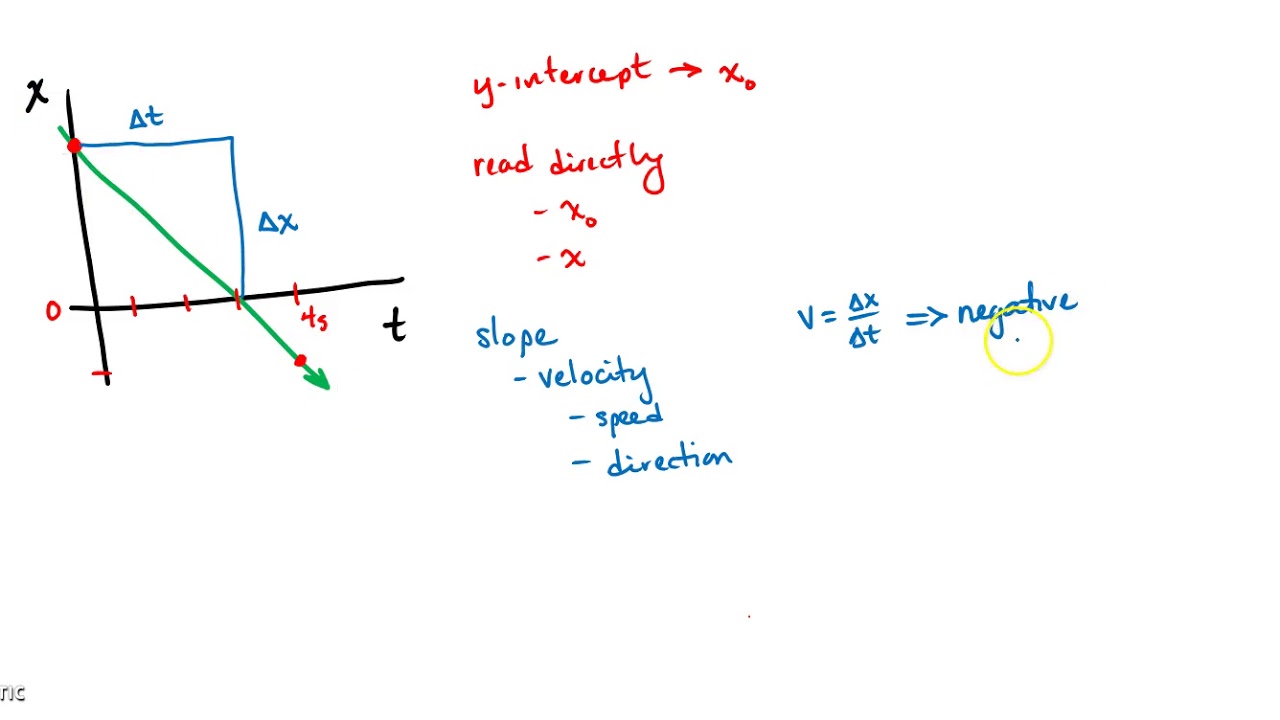 x
Δt
Δx
0
4s
t
y-intercept → x₀
read directly
- x₀
- x
slope
- velocity
- speed
- direction
v = Δx/Δt => negative
TIC